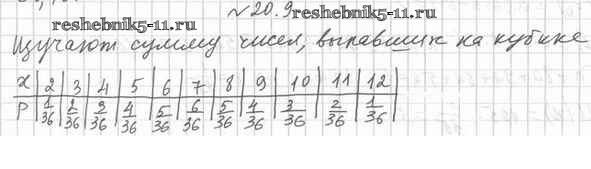 №20.9
reshebnik5-11.ru
reshebnik5-11.ru
Изучают сумму чисел, выпавших на кубике
x | 2 | 3 | 4 | 5 | 6 | 7 | 8 | 9 | 10 | 11 | 12
P | 1/36 | 2/36 | 3/36 | 4/36 | 5/36 | 6/36 | 5/36 | 4/36 | 3/36 | 2/36 | 1/36